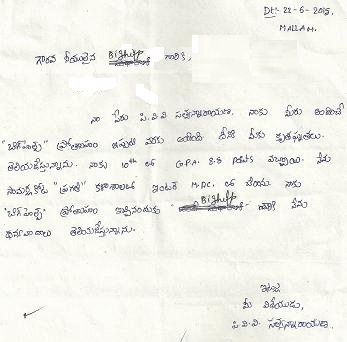 Dt:- 22-6-2015,
MALLAM.
గౌరవ నీయులైన Bighelp గారికి,
నా పేరు పి.వి.వి సత్యన్నారాయణ. నాకు మీరు అందించే
"బిగ్‌హెల్ప్" ప్రోత్సాహం ఇప్పటి వరకు అందింది దీనికి మీకు కృతజ్ఞతలు.
తెలియజేస్తున్నాను. నాకు 10th లో G.P.A 8.8 points వచ్చాయి. నేను
సామర్లకోట "ప్రగతి" కళాశాలలో ఇంటర్ M.P.C. లో చేరాను నాకు
"బిగ్‌హెల్ప్" ప్రోత్సాహం కల్పించినందుకు Bighelp నేను
ధన్యవాదాలు తెలియజేస్తున్నాను.
ఇట్లు
మీ విధేయుడు,
పి.వి.వి సత్యన్నారాయణ.